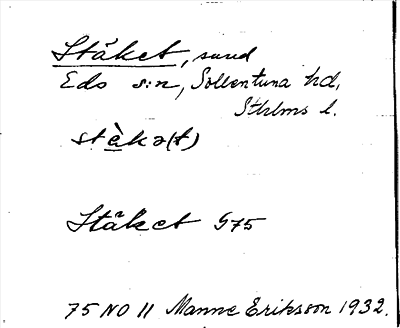 Stäket, sund
Eds s:n, Sollentuna hd,
Sthlms l.
stä̀kə(t)
Stäket G75
75 NO 11 Manne Eriksson 1932.